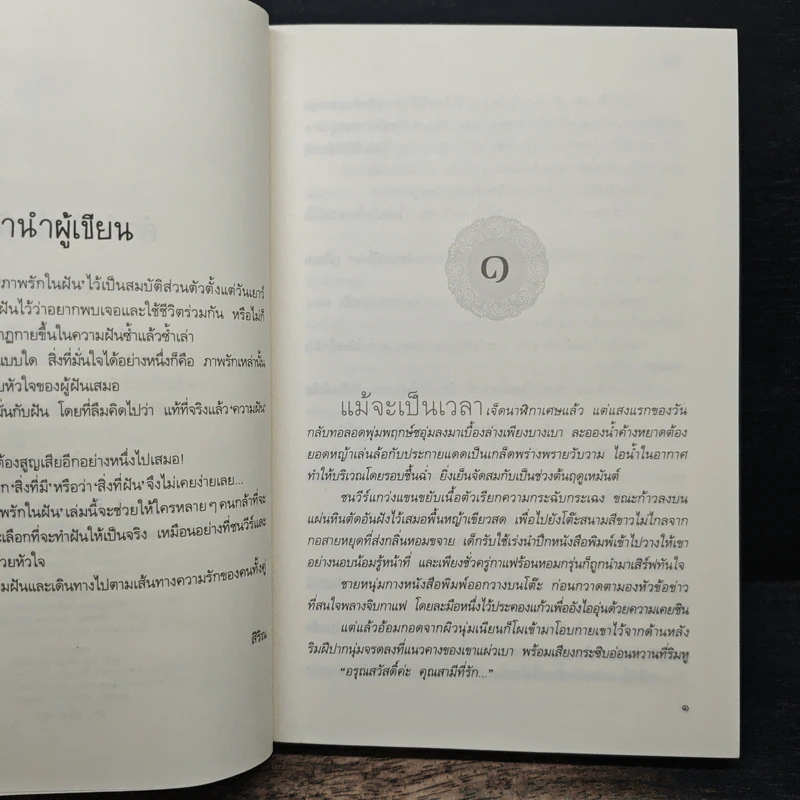 านำผู้เขียน
ภาพรักในฝัน' ไว้เป็นสมบัติส่วนตัวตั้งแต่วันเยาว์
ฝันไว้ว่าอยากพบเจอและใช้ชีวิตร่วมกัน หรือไม่ก็
กฏกายขึ้นในความฝันซ้ำแล้วซ้ำเล่า
แบบใด สิ่งที่มั่นใจได้อย่างหนึ่งก็คือ ภาพรักเหล่านั้น
บหัวใจของผู้ฝันเสมอ
มั่นกับฝัน โดยที่ลืมคิดไปว่า แท้ที่จริงแล้ว 'ความฝัน'
ต้องสูญเสียอีกอย่างหนึ่งไปเสมอ!
ก 'สิ่งที่มี' หรือว่า 'สิ่งที่ฝัน' จึงไม่เคยง่ายเลย...
พรักในฝัน' เล่มนี้จะช่วยให้ใครหลายๆ คนกล้าที่จะ
ะเลือกที่จะทำฝันให้เป็นจริง เหมือนอย่างที่ชนวีร์และ
วยหัวใจ
มฝันและเดินทางไปตามเส้นทางความรักของคนทั้งคู่
สิริณ
๑
แม้จะเป็นเวลาเจ็ดนาฬิกาเศษแล้ว แต่แสงแรกของวัน
กลับทอลอดพุ่มพฤกษ์ชอุ่มลงมาเบื้องล่างเพียงบางเบา ละอองน้ำค้างหยาดต้อง
ยอดหญ้าเล่นล้อกับประกายแดดเป็นเกล็ดพร่างพรายวับวาม ไอน้ำในอากาศ
ทำให้บริเวณโดยรอบชื้นฉ่ำ ยิ่งเย็นจัดสมกับเป็นช่วงต้นฤดูเหมันต์
ชนวีร์แกว่งแขนขยับเนื้อตัวเรียกความกระฉับกระเฉง ขณะก้าวลงบน
แผ่นหินตัดอันฝังไว้เสมอพื้นหญ้าเขียวสด เพื่อไปยังโต๊ะสนามสีขาวไม่ไกลจาก
กอสายหยุดที่ส่งกลิ่นหอมขจาย เด็กรับใช้เร่งนำปึกหนังสือพิมพ์เข้าไปวางให้เขา
อย่างนอบน้อมรู้หน้าที่ และเพียงชั่วครู่กาแฟร้อนหอมกรุ่นก็ถูกนำมาเสิร์ฟทันใจ
ชายหนุ่มกางหนังสือพิมพ์ออกวางบนโต๊ะ ก่อนกวาดตามองหัวข้อข่าว
ที่สนใจพลางจิบกาแฟ โดยละมือหนึ่งไว้ประคองแก้วเพื่ออังไออุ่นด้วยความเคยชิน
แต่แล้วอ้อมกอดจากผิวนุ่มเนียนก็โผเข้ามาโอบกายเขาไว้จากด้านหลัง
ริมฝีปากนุ่มจรดลงที่แนวคางของเขาแผ่วเบา พร้อมเสียงกระซิบอ่อนหวานที่ริมหู
"อรุณสวัสดิ์ค่ะ คุณสามีที่รัก..."
๑